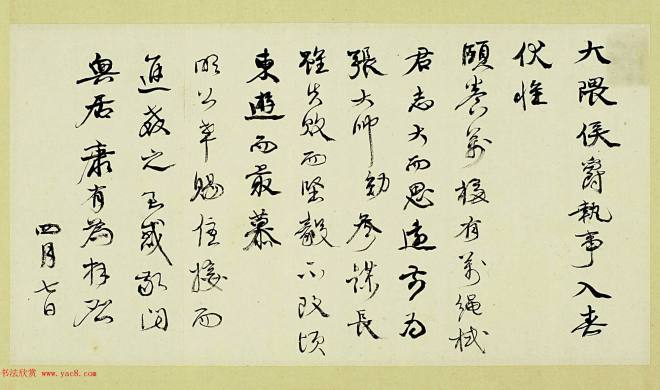 大隈侯爵執事入春
伏惟
頤養萬福有萬繩栻
君志大而思遠前為
張大帥勳參謀長
雖失敗而堅毅不改頃
東遊而最慕
明公幸賜住接而
進教之至盛敬問
興居康有為拜啟
四月七日
书法欣赏 www.yac8.com